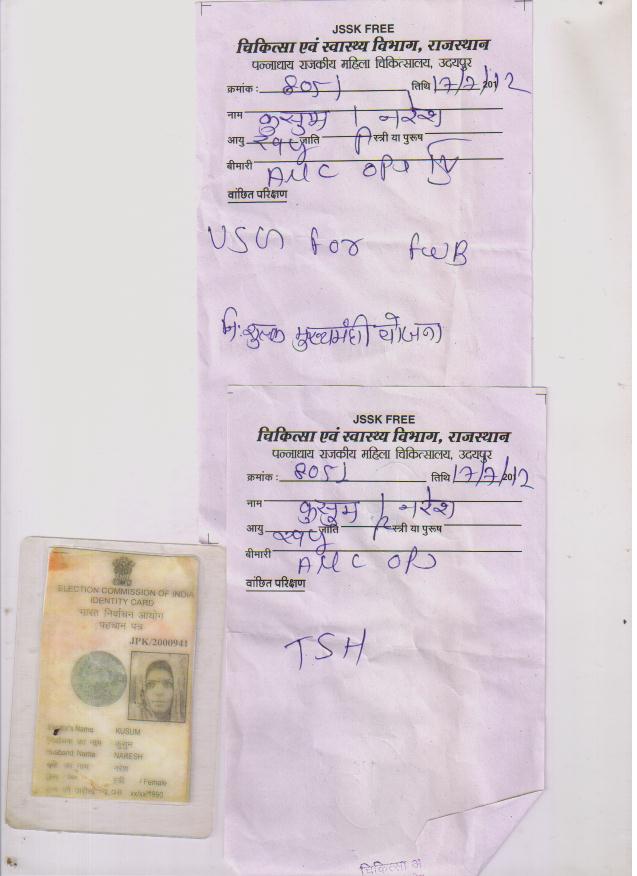 JSSK FREE
चिकित्सा एवं स्वास्थ्य विभाग, राजस्थान
पन्नाधाय राजकीय महिला चिकित्सालय, उदयपुर
क्रमांक : 8051 तिथि 17/7/2012
नाम कुसुम / नरेश
आयु जाति स्त्री या पुरूष
बीमारी ANC OPD
वांछित परिक्षण
USG for FWB
नि:शुल्क मुख्यमंत्री योजना
JSSK FREE
चिकित्सा एवं स्वास्थ्य विभाग, राजस्थान
पन्नाधाय राजकीय महिला चिकित्सालय, उदयपुर
क्रमांक : 8051 तिथि 17/7/2012
नाम कुसुम / नरेश
आयु जाति स्त्री या पुरूष
बीमारी ANC OPD
वांछित परिक्षण
TSH
चिकित्सा अ
ELECTION COMMISSION OF INDIA
IDENTITY CARD
भारत निर्वाचन आयोग
पहचान पत्र
JPK/2000941
Name KUSUM
निर्वाचक का नाम कुसुम
Husband Name NARESH
पति का नाम नरेश
स्त्री / Female
xx/xx/1990